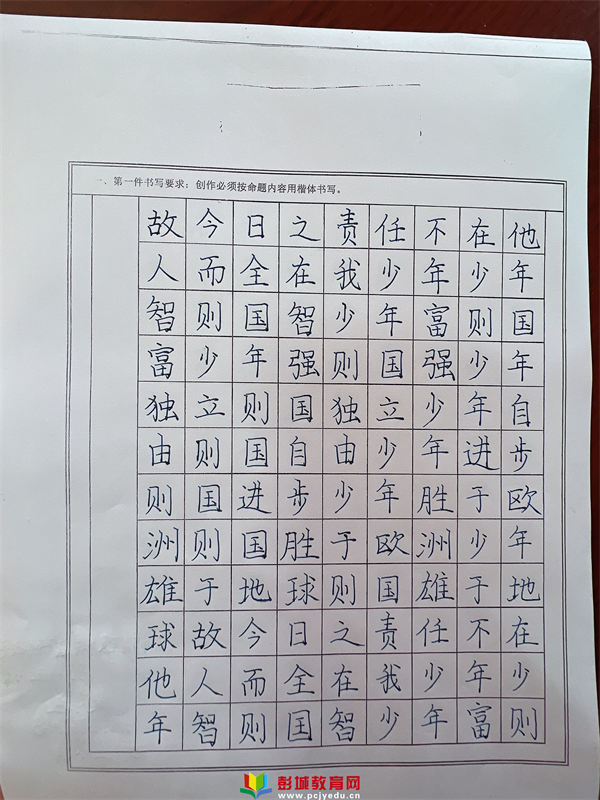 一、第一件书写要求：创作必须按命题内容用楷体书写。
故今日之责任不在他
人而全在我少年少年
智则国智少年富则国
富少年强则国强少年
独立则国独立少年自
由则国自由少年进步
则国进步少年胜于欧
洲则国胜于欧洲少年
雄于地球则国雄于地
球故今日之责任不在
他人而全在我少年少
年智则国智少年富则
彭城教育网
www.pcjyedu.cn